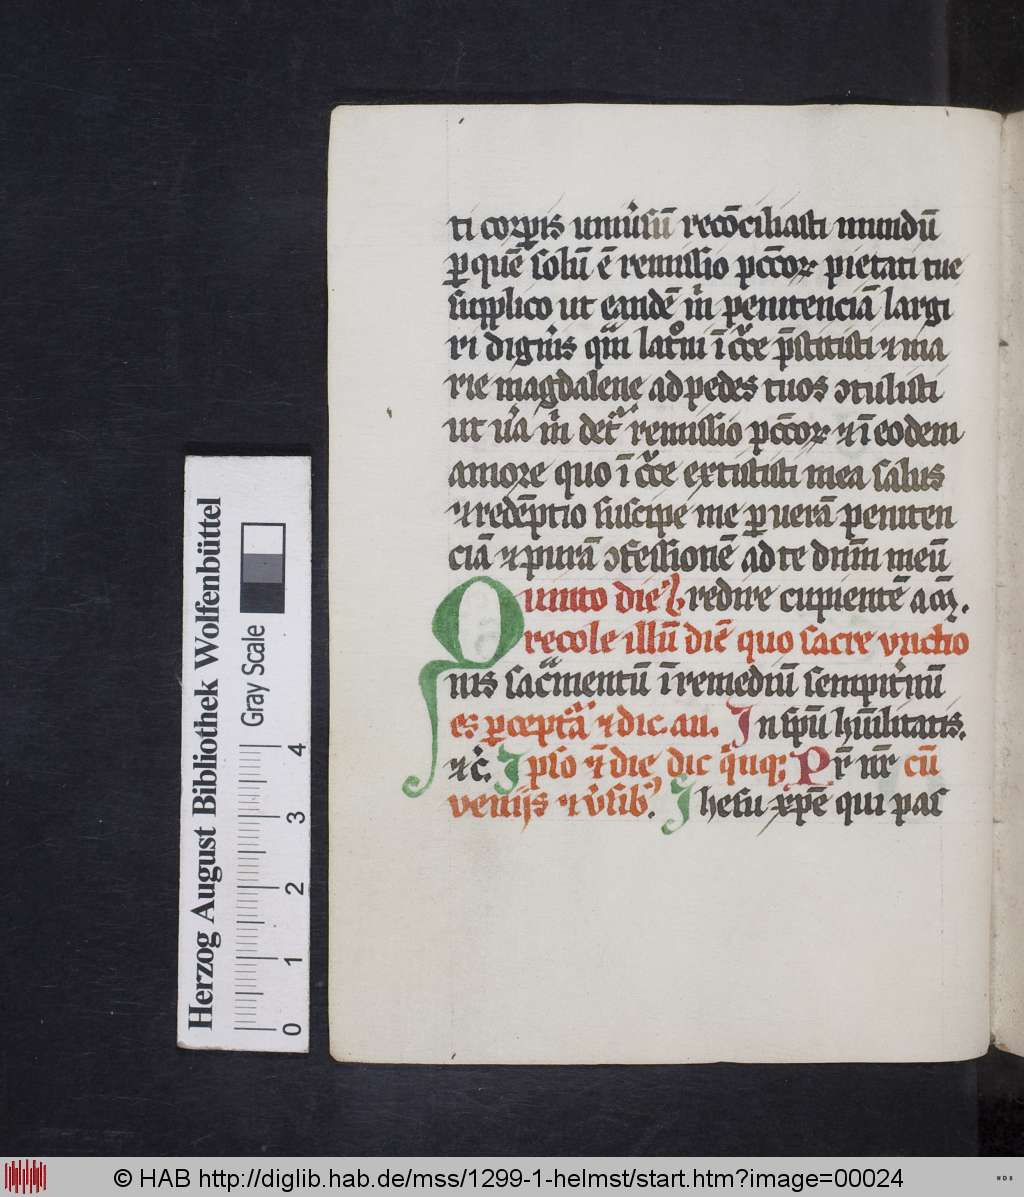 ti corpis univ̓sū recōciliasti mundū
ꝑ quē solū ē remissio pcc̄oꝝ pietati tue
supplico ut eandē m̄ penitenciā largi
ri digneris quā latroni ī cruce p̄stitisti ⁊ ma
rie magdalene ad pedes tuos ɔtulisti
ut v̓a m̄ det᷑ remissio pcc̄oꝝ ⁊ ī eodem
amore quo ī cͣce extitisti mea salus
⁊ redēptio suscipe me ꝑ uerā peniten
ciā ⁊ purā ɔfessionē ad te dn̄m meū
Quinto die redire cupientē am̄.
recole illū diē quo sacre vnctio
nis sacͣmentū ī remediū sempit̓nū
es ꝑceptͣa ⁊ dic. an. In spū hūilitatis.
⁊ c̓. Ipso ēt̄ die dic quinqꝫ Pr̄ nr̄ cū
venijs ⁊ v̓sibꝰ. Ihesu xp̄e qui pas
Herzog August Bibliothek Wolfenbüttel
Gray Scale
0 1 2 3 4
© HAB http://diglib.hab.de/mss/1299-1-helmst/start.htm?image=00024